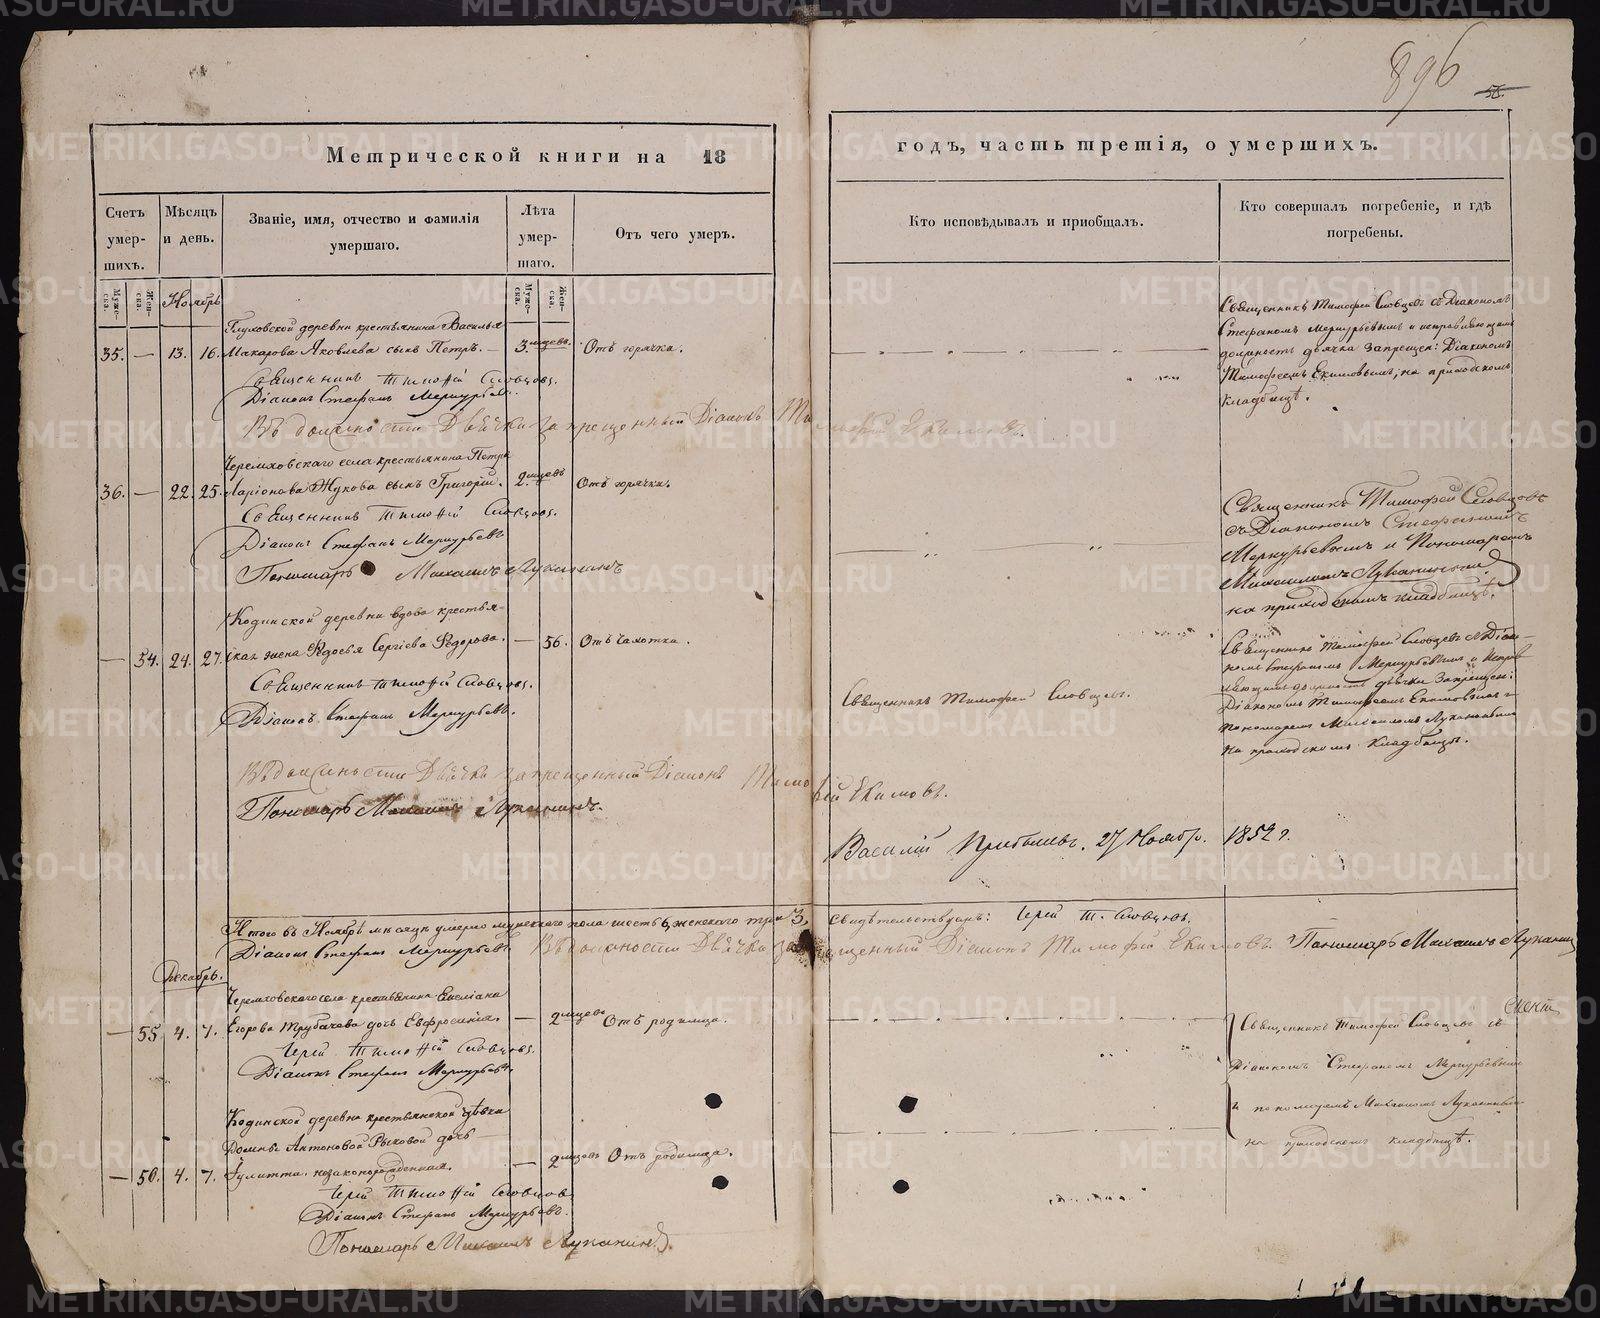 896
58.
Метрической книги на 18
годъ, часть третія, о умершихъ.
Счетъ умер-шихъ.
Мѣсяцъ и день.
Званіе, имя, отчество и фамилія умершаго.
Лѣта умер-шаго.
Отъ чего умеръ.
Кто исповѣдывалъ и приобщалъ.
Кто совершалъ погребеніе, и гдѣ погребены.
Муже-ска.
Жен-ска.
Ноябрь
Муже-ска.
Жен-ска.
Глуховской деревни крестьянина Василья
35. — 13. 16. Макарова Яковлева сынъ Петръ. — 3. мцевъ. Отъ горячки.
Священникъ Тимофей Словцовъ.
Діаконъ Стефанъ Меркурьевъ.
Въ должности Дьячка запрещенный Діаконъ Тимофей Екимовъ.
Священникъ Тимофей Словцевъ съ Діакономъ
Стефаномъ Меркурьевымъ и исправляющимъ
должность дьячка запрещен: Діакономъ
Тимофеемъ Екимовымъ, на приходскомъ
кладбищѣ.
Черемховскаго села крестьянина Петра
36. — 22. 25. Ларіонова Жукова сынъ Григорій. 2. мцевъ Отъ горячки.
Священникъ Тимофей Словцовъ.
Діаконъ Стефанъ Меркурьевъ
Пономарь Михаилъ Луканинъ
Священникъ Тимофей Словцовъ
съ Діакономъ Стефаномъ
Меркурьевымъ и Пономаремъ
Михаиломъ Луканинымъ
на приходскомъ кладбищѣ.
Кодинской деревни вдова крестья-
— 54. 24. 27. ская жена Федосья Сергіева Федорова. — 56. Отъ чахотки.
Священникъ Тимофей Словцовъ.
Діаконъ Стефанъ Меркурьевъ.
Священникъ Тимофей Словцевъ.
Священникъ Тимофей Словцевъ съ Діако-
номъ Стефаномъ Меркурьевымъ и исправ
ляющимъ должность дьячка запрещен:
Діакономъ Тимофеемъ Екимовымъ и
пономаремъ Михаиломъ Луканинымъ
на приходскомъ кладбищѣ.
Въ должности Дьячка запрещенный Діаконъ Тимофей Екимовъ.
Пономарь Михаилъ Луканинъ.
Василій 27 Ноября. 1852 г.
Итого въ Ноябрѣ мѣсяцѣ умерло мужескаго пола шесть 6, женскаго три 3.
свидѣтельствуютъ: Іерей Т. Словцовъ.
Діаконъ Стефанъ Меркурьевъ. Въ должности Дьячка запрещенный Діаконъ Тимофей Екимовъ. Пономарь Михаилъ Луканинъ
Декабрь.
Черемховскаго села крестьянина Емеліана
— 55 4. 7. Егорова Трубачева дочь Евфросинія. — 2 мцевъ Отъ родимца.
Іерей Тимофей Словцовъ.
Діаконъ Стефанъ Меркурьевъ.
Священникъ Тимофей Словцевъ съ
Діакономъ Стефаномъ Меркурьевымъ
и пономаремъ Михаиломъ Луканинымъ
на приходскомъ кладбищѣ.
Кодинской деревни крестьянской дѣвки
Домны Антоновой Рыковой дочь
— 56. 4. 7. Іулитта, незаконорожденная. — 2 мцевъ Отъ родимца.
Іерей Тимофей Словцовъ
Діаконъ Стефанъ Меркурьевъ.
Пономарь Михаилъ Луканинъ.
METRIKI.GASO-URAL.RU